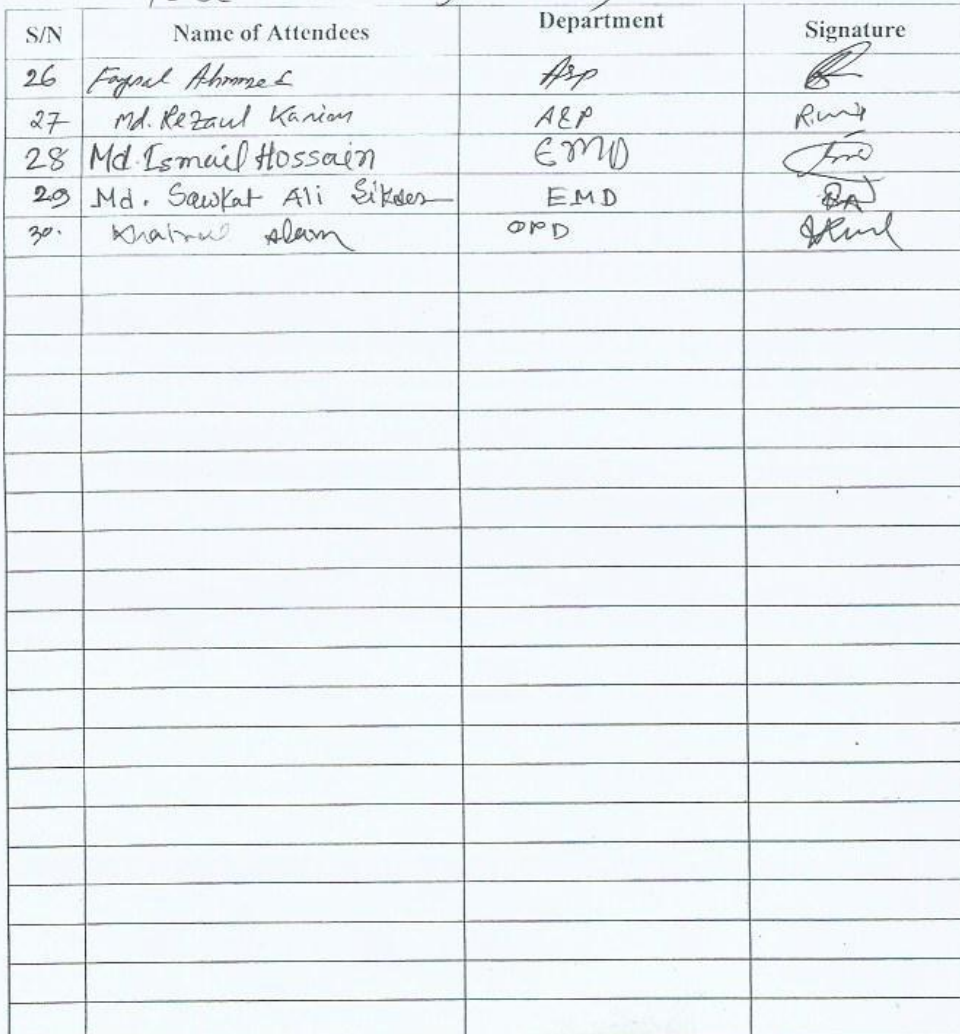 S/N Name of Attendees Department Signature
26 Faysal Ahmmed A&P
27 Md. Rezaul Karim A&P
28 Md. Ismail Hossain EMD
29 Md. Sawkat Ali Sikder EMD
30. Khairul Alam OPD